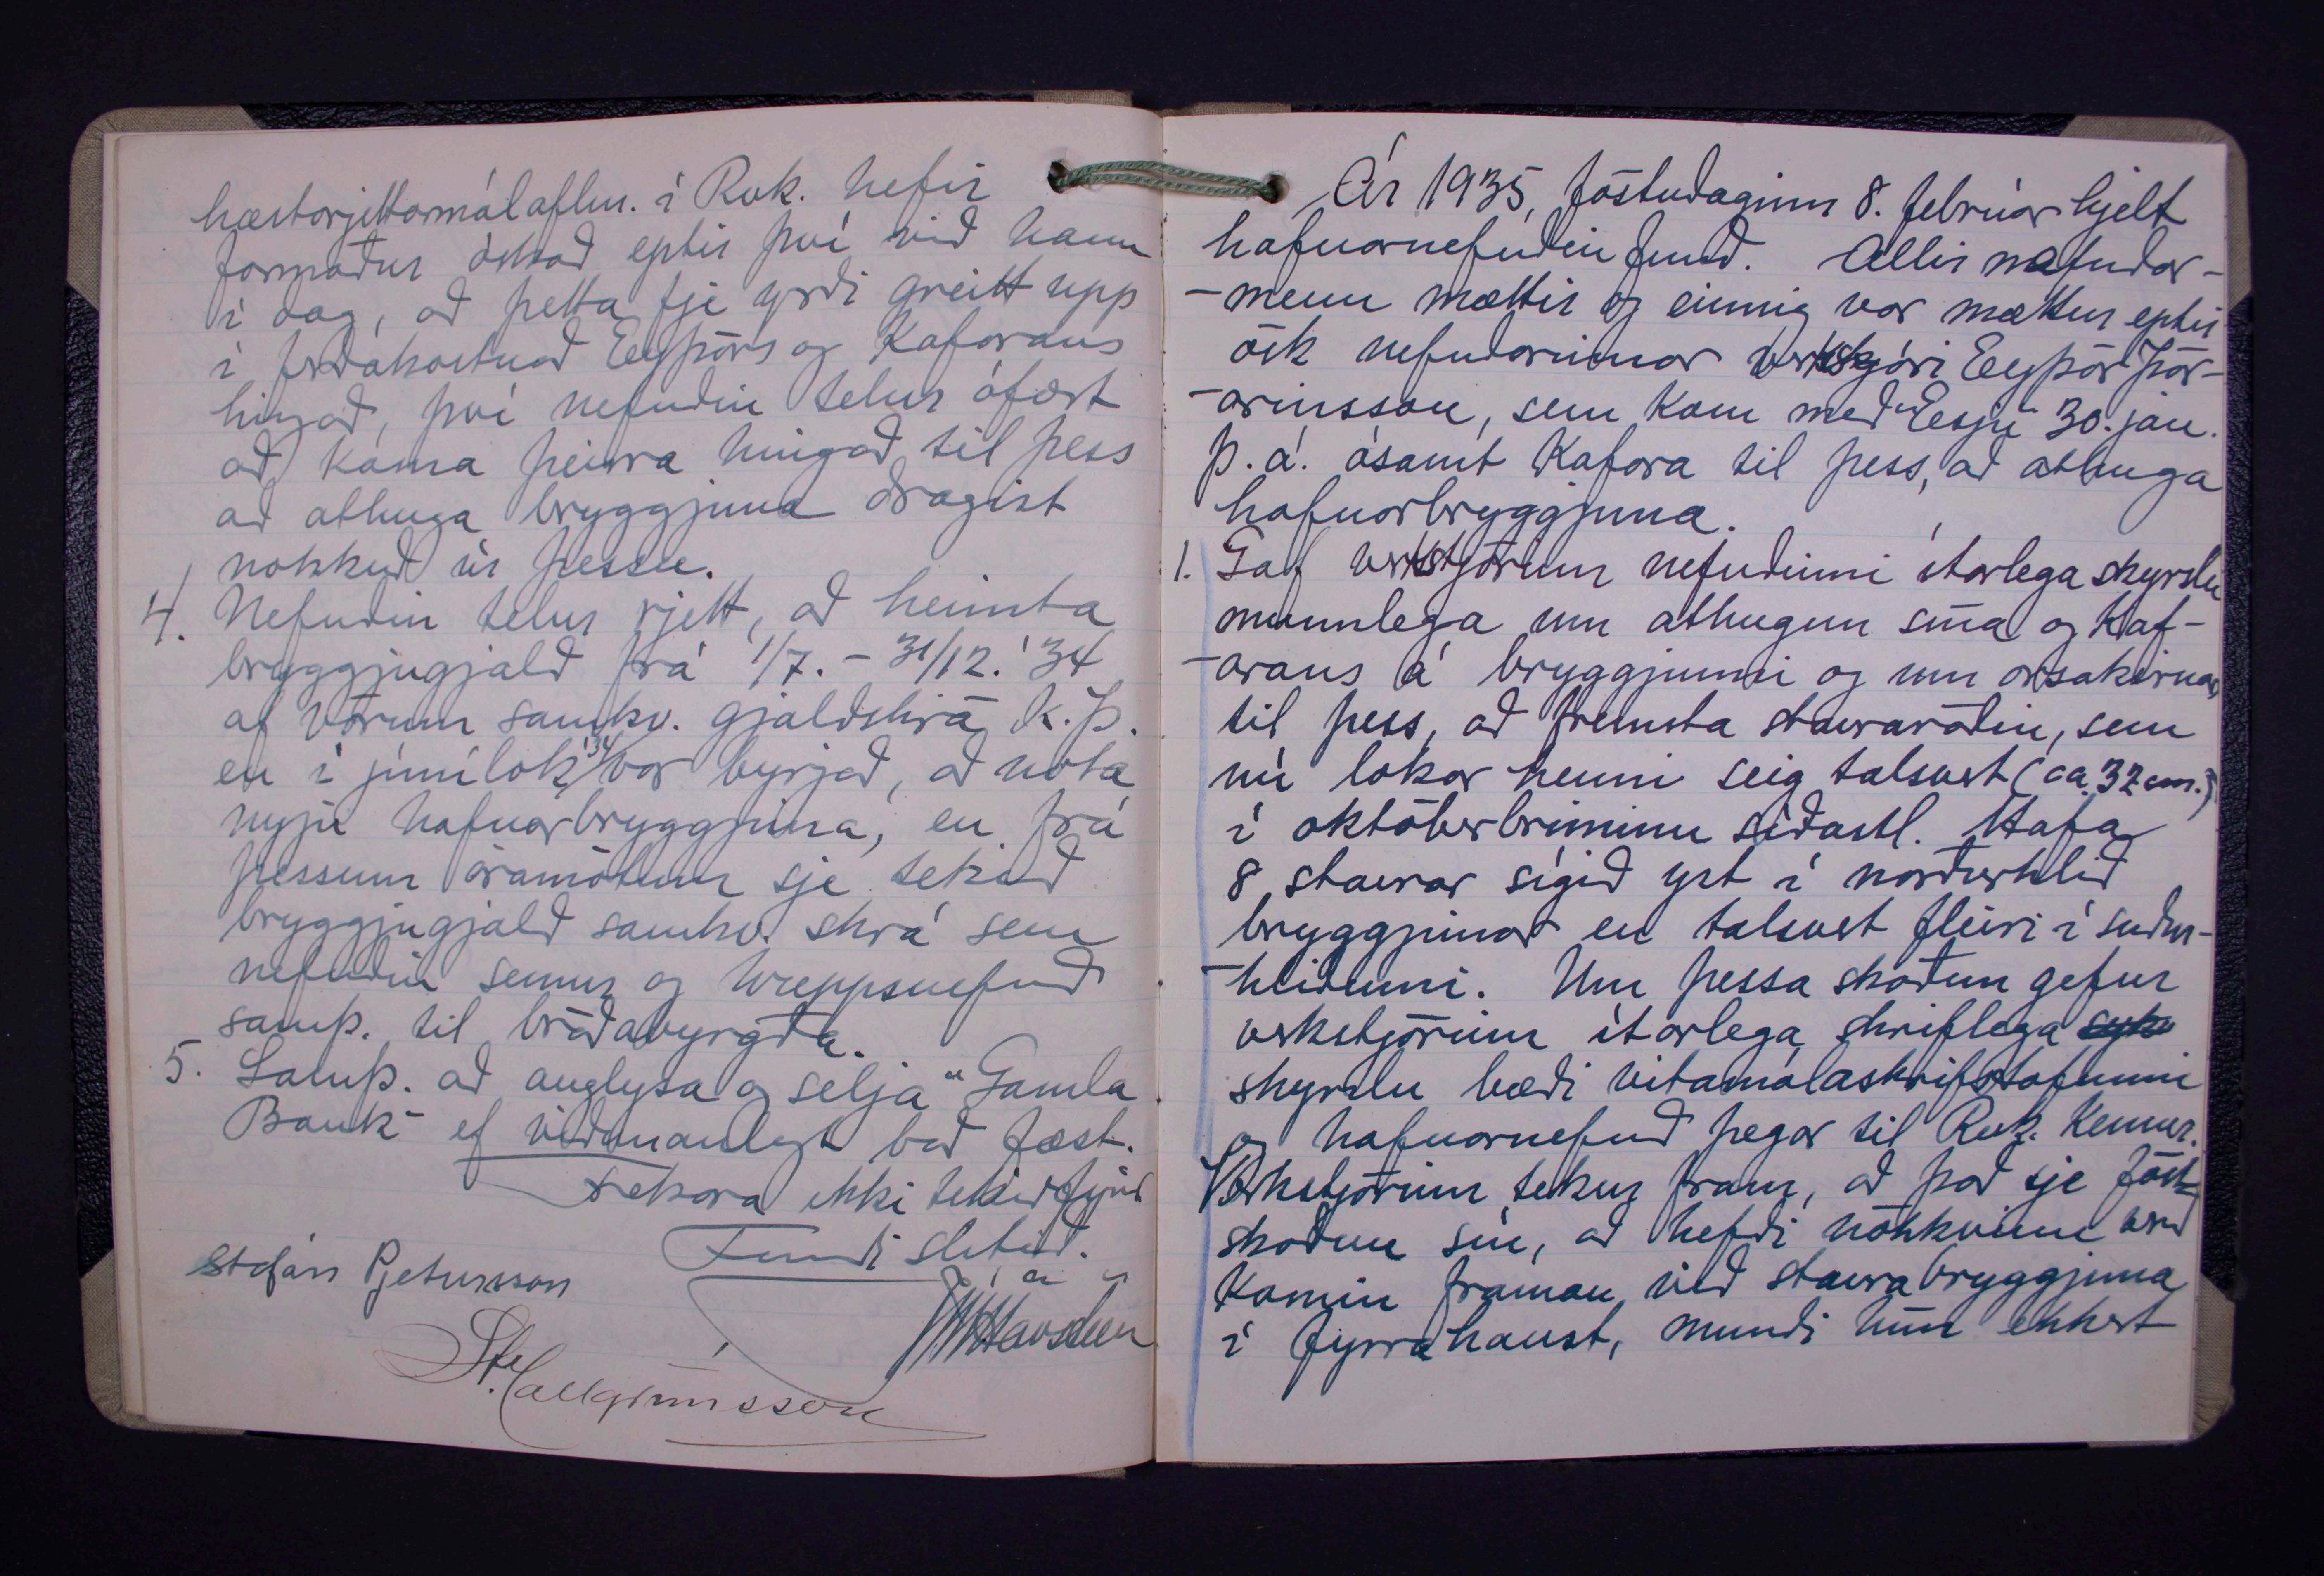 hæstarjettarmálaflm. í Rvk. hefir
formaður óskað eptir því við hann
í dag, að þetta fje yrði greitt upp
í ferðakostnað Eyþórs og Kafarans
hingað, því nefndin telur ófært
að koma þeirra hingað til þess
að athuga bryggjuna dragist
nokkuð úr þessu.
4. Nefndin telur rjett, að heimta
bryggjugjald frá 1/7. - 31/12. '34
af vörum samkv. gjaldskrá K.Þ.
en í júnílok '34 var byrjað, að nota
nýju hafnarbryggjuna, en frá
þessum áramótum sje tekið
bryggjugjald samkv. skrá sem
nefndin semur og hreppsnefnd
samþ. til bráðabyrgða.
5. Samþ. að auglýsa og selja "Gamla
Bauk" ef viðunanlegt boð fæst.
Fekara ekki tekið fyrir
Fundi slitið.
Stefán Pjetursson
J Havsteen
St. Hallgrímsson
Ár 1935, föstudaginn 8. febrúar hjelt
hafnarnefndin fund. Allir nefndar-
-menn mættir og einnig var mættur eptir
ósk nefndarinnar verkstjóri Eyþór Þór-
-arinsson, sem kom með "Esju" 30. jan.
þ.á. ásamt Kafara til þess, að athuga
hafnarbryggjuna.
1. Gaf verkstjórinn nefndinni ítarlega skýrslu
munnlega um athugun sína og Kaf-
-arans á bryggjunni og um orsakirnar
til þess, að fremsta stauraröðin, sem
nú lokar henni seig talsvert (ca. 32 cm.)
í októberbriminu síðastl. Hafa
8 staurar sigið yst í norðurhlið
bryggjunnar en talsvert fleiri í suður-
-hliðinni. Um þessa skoðun gefur
verkstjórinn ítarlega, skriflega
skýrslu bæði vitamálaskrifstofunni
og hafnarnefnd þegar til Rvk. Kemur.
Verkstjórinn tekur fram, að það sje föst
skoðun sín, að hefði nökkvinn verið
Kominn framan við staurabryggjuna
í fyrrahaust, mundi hún ekkert